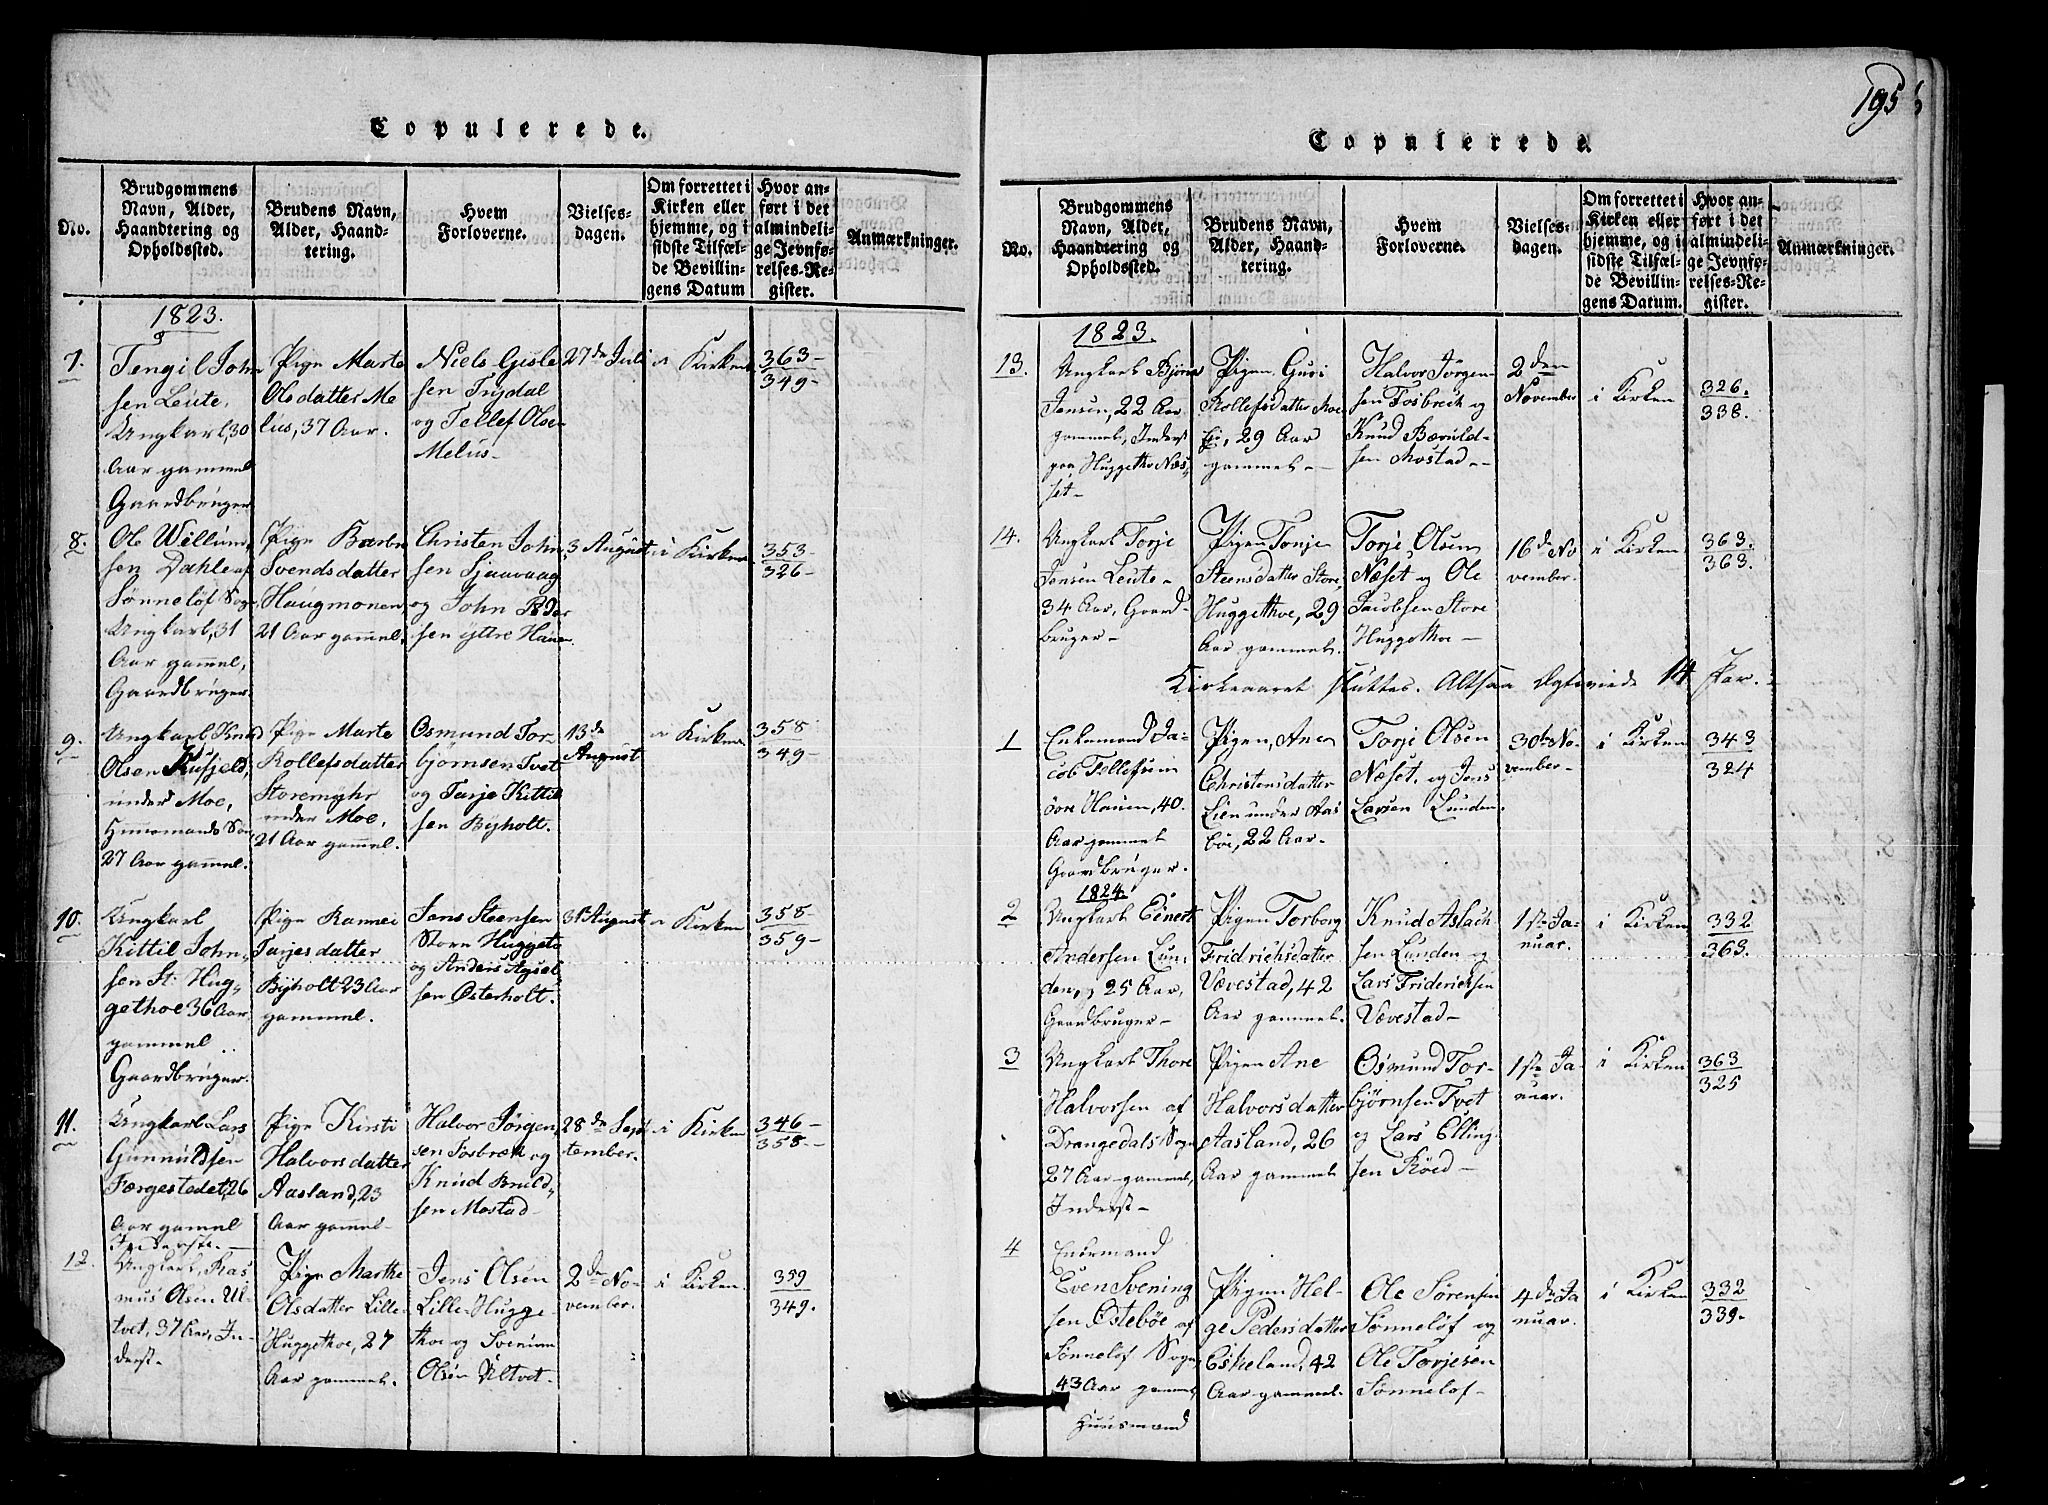 195
Copulerede.
No.
Brudgommens
Navn, Alder,
Haandtering og
Opholdssted.
Brudens Navn,
Alder, Haand-
tering.
Hvem
Forloverne.
Vielses-
dagen.
Om forrettet i
Kirken eller
hjemme, og i
sidste Tilfæl-
de Bevillin-
gens Datum
Hvor an-
ført i det
almindeli-
ge Jevnfø-
relses-Re-
gister.
Anmærkninger.
1823.
7.
Tengil John
sen Leute,
Ungkarl, 30
Aar gammel
Gaardbruger
Pige Marte
Olsdatter Me
lus, 37 Aar.
Niels Gisle
sen Trydal
og Tellef Olse
Melus-
27de Juli
i Kirken
363-
349-
8.
Ole Willum
sen Dahle af
Sønneløf Sogn
Ungkarl, 31
Aar gammel,
Gaardbruger.
Pige
Svendsdatter
Haugmonen,
21 Aar gammel.
Christen John
sen Sjaavaag
og John Peder
sen yttre Hauen
3 August
i Kirken
353-
326-
9.
Ungkarl Knud
Olsen Kufjeld,
under Moe,
Huusmands Søn
27 Aar gammel.
Pige Marte
Rollefsdatter
Storemyhr
under Moe,
21 Aar gammel.
Osmund Tor-
bjørnsen Tvet
og Tarje Kittil
sen Byholt.
13de
August
i Kirken
358
349-
10.
Ungkarl
Kittil John-
sen St: Hug-
gethoe 36 Aar
gammel
Gaardbruger.
Pige Rannei
Tarjesdatter
Byholt 23 Aar
gammel.
Jens Steensen
Store Huggeto
og Anders Aysel
sen Østerholt.
31te August
i Kirken
358
359-
11.
Ungkarl Lars
Gunnuldsen
Færgestedet, 26
Aar gammel
Inderste.
Pige Kirsti
Halvorsdatter
Aasland, 23
Aar gammel-
Halvor Jørgen
sen Fosbræk og
Knud Bruld-
sen Mostad-
28de Sept
tember.
i Kirken
346-
358-
12.
Ungkarl, Ras
mus Olsen Ul-
tvet, 37 Aar, In-
derst-
Pige Marthe
Olsdatter Lille-
Huggethoe, 27
Aar gammel.
Jens Olsen
Lille-Hugge
thoe og Svenum
Olsen Ultvet-
2de No-
vember.
i Kirken.
359
349.
Copulerede.
No.
Brudgommens
Navn, Alder,
Haandtering og
Opholdssted.
Brudens Navn,
Alder, Haand-
tering.
Hvem
Forloverne.
Vielses-
dagen.
Om forrettet i
Kirken eller
hjemme, og i
sidste Tilfæl-
de Bevillin-
gens Datum.
Hvor an-
ført i det
almindeli-
ge Jevnfø-
relses-Re-
gister.
Anmærkninger.
1823.
13.
Ungkarl Bjørn
Jensen, 22 Aar
gammel, Inderst
paa Huggetho Næs
set-
Pigen Guri
Rollefsdatter Moe
Ei, 29 Aar
gammel-
Halvor Jørgen
sen Fosbrek og
Knud Bæruld-
sen Mostad-
2den
November
i Kirken
326.
338.
14.
Ungkarl Torje
Jensen Leute-
34 Aar, Gaard-
bruger-
Pigen Tonje
Steensdatter Store
Huggethoe, 29
Aar gammel.
Torje Olsen
Næset og Ole
Jacobsen Store
Huggethoe-
16de No
vember.
i Kirken
363.
363.
Kirkeaaret sluttes. Altsaa Ægteviede 14 Par.-
1
Enkemand Ja-
cob Tellefsen
øvre Hauen, 40.
Aar gammel
Gaardbruger.
Pigen, Ane
Christensdatter
Lien under Aas
bøe, 22 Aar.
Torje Olsen
Næset, og Jens
Larsen Lunden.
30te No-
vember-
i Kirken
343
324
1824.
2
Ungkarl Einert
Andersen Lun-
den, 25 Aar,
Gaardbruger-
Pigen Torborg
Fridrichsdatter
Vævestad, 42
Aar gammel.
Knud Aslach
sen Lunden og
Lars Friderichsen
Vævestad-
1ste Ja-
nuar.
i Kirken
332
363.
3
Ungkarl Thore
Halvorsen af
Drangedals Sogn
27 Aar gammel,
Inderst-
Pigen Ane
Halvorsdatter
Aasland, 26
Aar gammel
Osmund Tor-
bjørnsen Tvet
og Lars Elling-
sen Røed-
1ste Ja-
nuar.
i Kirken
363
325
4
Enkemand
Even Svening
sen Østebøe af
Sønneløf Sogn,
43 Aar gammel
Huusmand
Pigen Hel-
ge Pedersdatter
Eskeland, 42
Aar gammel.
Ole Sørensen
Sønneløf og
Ole Torjesen
Sønneløf-
4de Ja
nuar.
i Kirken
332
339-